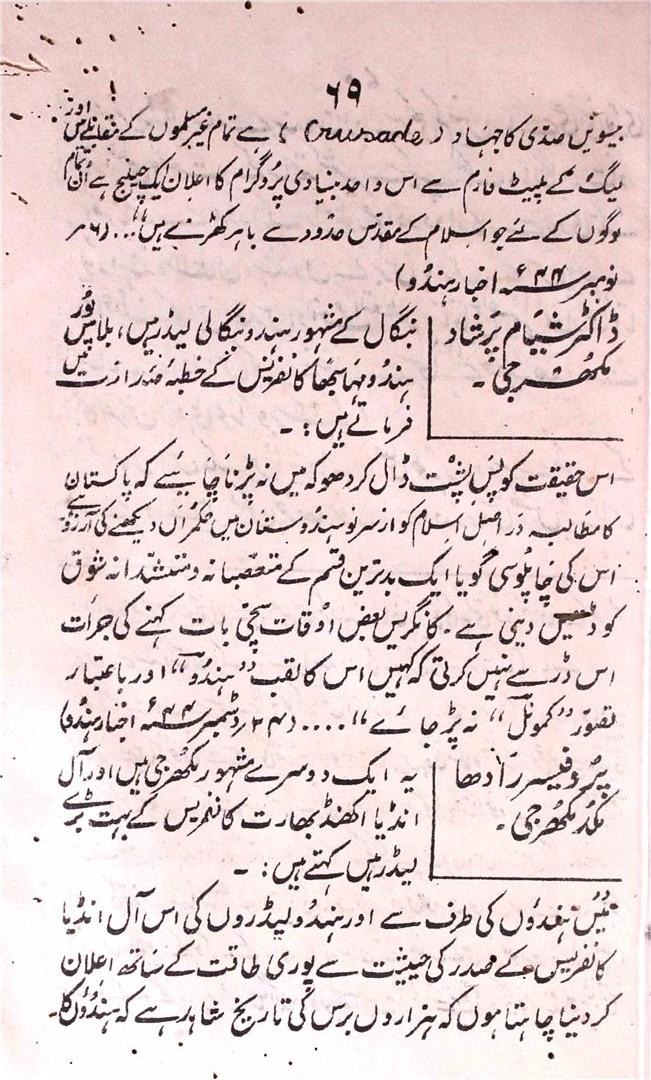 ۶۹
بیسویں صدی کا جہاد ( Crusade ) ہے تمام غیر مسلموں کے مقابلے میں اور
لیگ کے پلیٹ فارم سے اس واحد بنیادی پروگرام کا اعلان ایک چیلنج ہے اُن تمام
لوگوں کے لئے جو اسلام کے مقدس حدود سے باہر کھڑے ہیں"... (۶ر
نومبر ۴۴ء اخبار ہندو)
ڈاکٹر شیام پرشاد
مکھرجی۔
بنگال کے مشہور ہندو بنگالی لیڈر ہیں، بلاس پور
ہندو مہاسبھا کانفرنس کے خطبۂ صدارت میں
فرماتے ہیں:۔
اس حقیقت کو پس پشت ڈال کر دھوکہ میں نہ پڑنا چاہیئے کہ پاکستان
کا مطالبہ دراصل اسلام کو از سر نو ہندوستان میں حکمراں دیکھنے کی آرزو ہے
اس کی چاپلوسی گویا ایک بدترین قسم کے متعصبانہ و متشددانہ شوق
کو دینی ہے۔ کانگریس بعض اوقات سچی بات کہنے کی جرأت
اس ڈر سے نہیں کرتی کہ کہیں اس کا لقب "ہندو" اور باعتبار
تصور "کمونل" نہ پڑ جائے".... (۳۴ر دسمبر ۴۴ء اخبار ہندو)
پروفیسر رادھا
مکد مکھرجی۔
یہ ایک دوسرے مشہور مکھرجی ہیں اور آل
انڈیا اکھنڈ بھارت کانفرنس کے بہت بڑے
لیڈر ہیں کہتے ہیں:۔
میں ہندوں کی طرف سے اور ہندو لیڈروں کی اس آل انڈیا
کانفریس کے صدر کی حیثیت سے پوری طاقت کے ساتھ اعلان
کر دینا چاہتا ہوں کہ ہزاروں برس کی تاریخ شاہد ہے کہ ہندوؤں کا۔